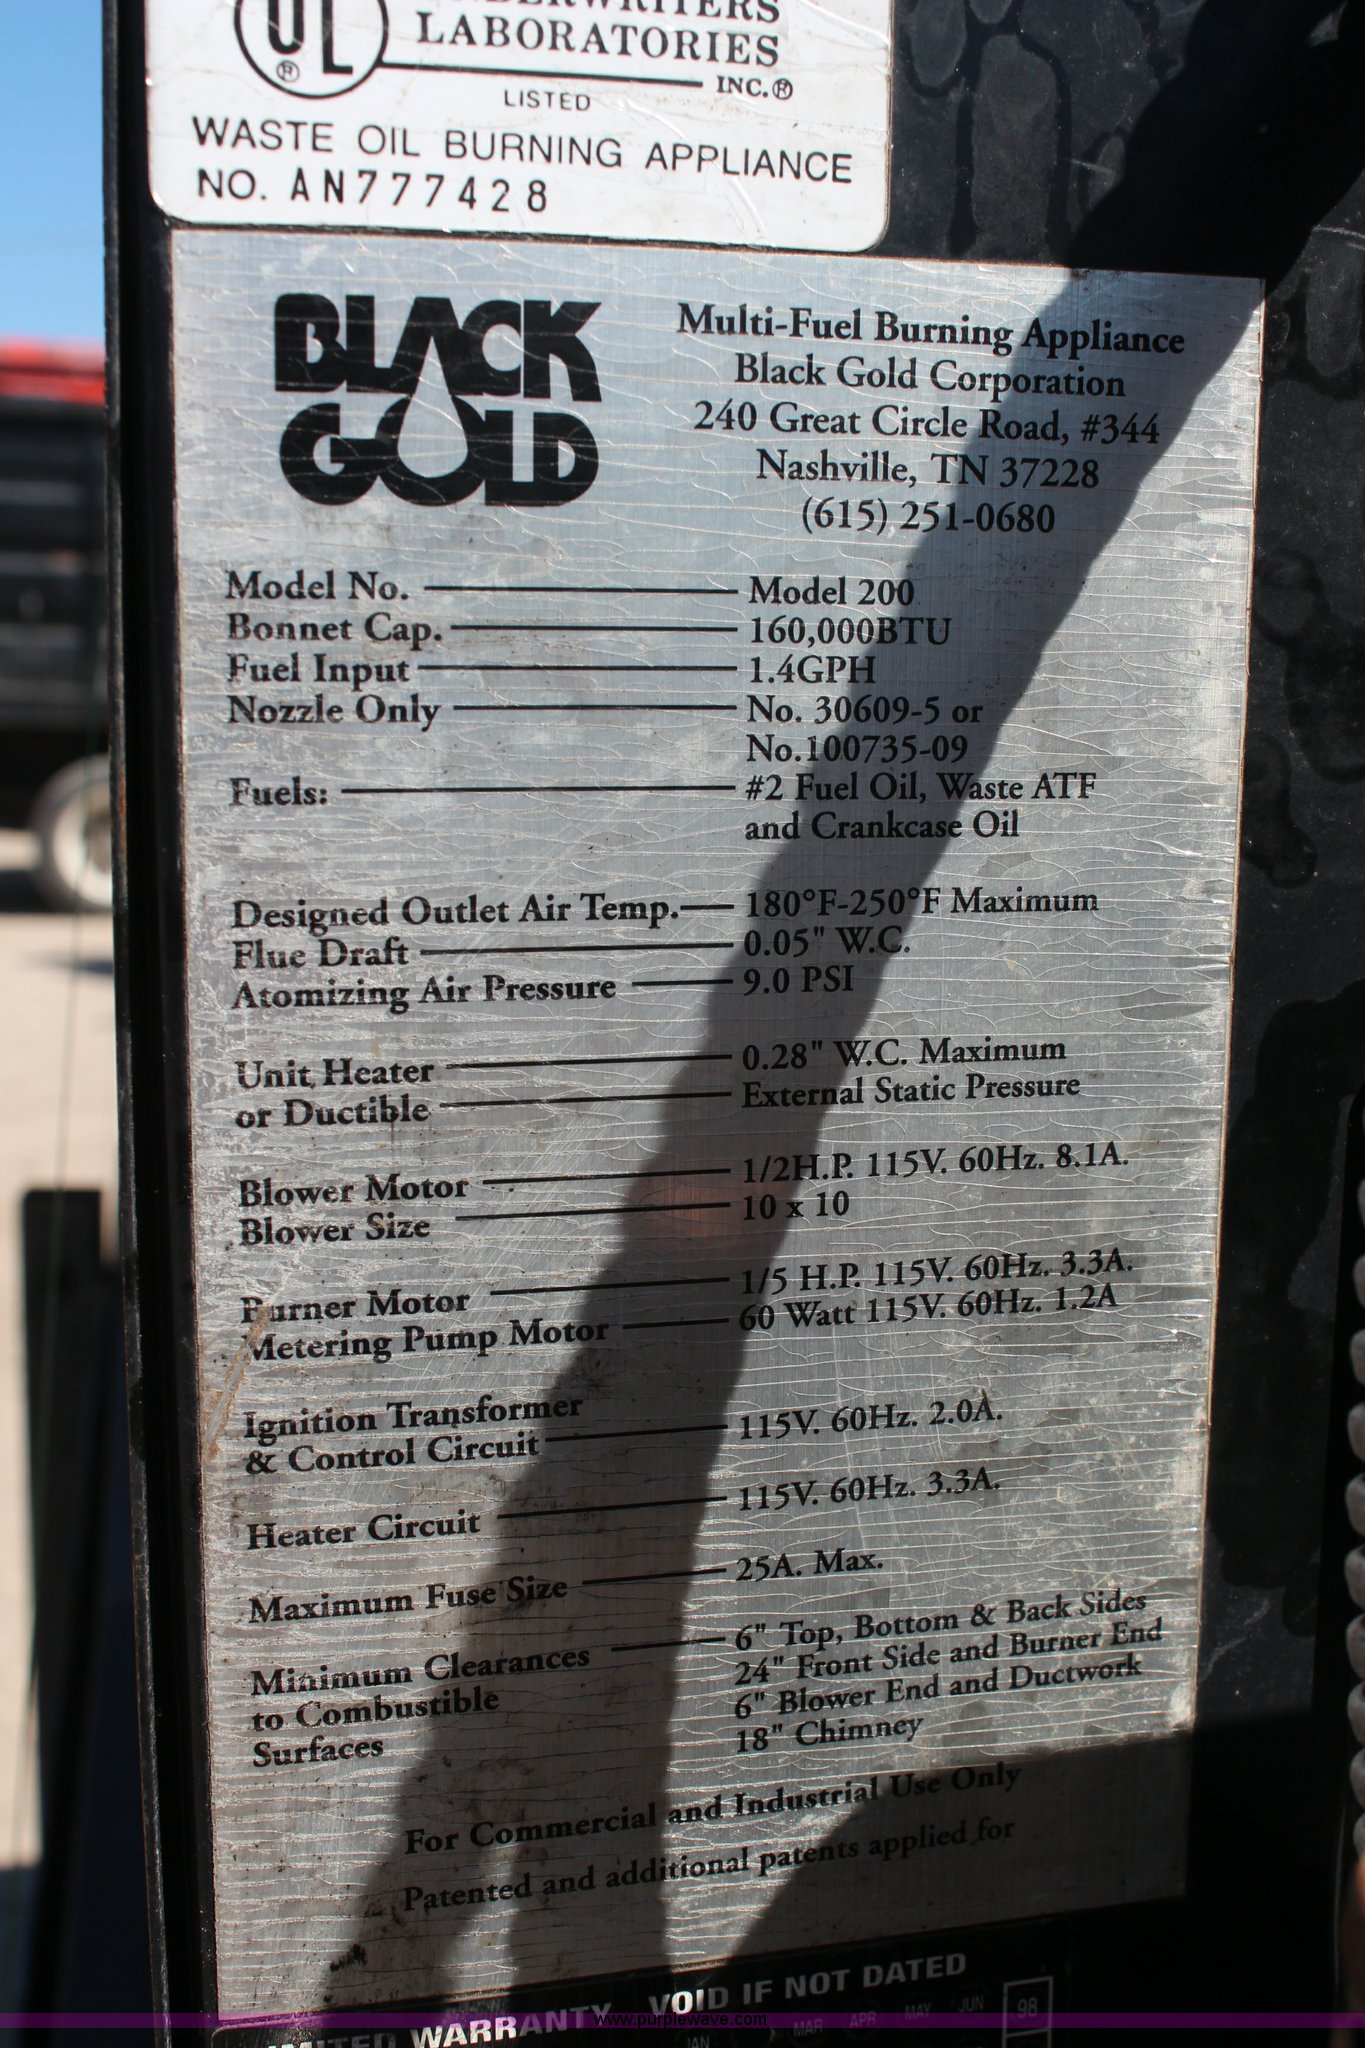 UL
®
LABORATORIES
INC.®
LISTED
WASTE OIL BURNING APPLIANCE
NO. AN777428
BLACK
GOLD
Multi-Fuel Burning Appliance
Black Gold Corporation
240 Great Circle Road, #344
Nashville, TN 37228
(615) 251-0680
Model No. Model 200
Bonnet Cap. 160,000BTU
Fuel Input 1.4GPH
Nozzle Only No. 30609-5 or
No.100735-09
Fuels: #2 Fuel Oil, Waste ATF
and Crankcase Oil
Designed Outlet Air Temp. 180°F-250°F Maximum
Flue Draft 0.05" W.C.
Atomizing Air Pressure 9.0 PSI
Unit Heater 0.28" W.C. Maximum
or Ductible External Static Pressure
Blower Motor 1/2H.P. 115V. 60Hz. 8.1A.
Blower Size 10 x 10
Burner Motor 1/5 H.P. 115V. 60Hz. 3.3A.
Metering Pump Motor 60 Watt 115V. 60Hz. 1.2A
Ignition Transformer
& Control Circuit 115V. 60Hz. 2.0A.
Heater Circuit 115V. 60Hz. 3.3A.
Maximum Fuse Size 25A. Max.
Minimum Clearances 6" Top, Bottom & Back Sides
to Combustible 24" Front Side and Burner End
Surfaces 6" Blower End and Ductwork
18" Chimney
For Commercial and Industrial Use Only
Patented and additional patents applied for
WARRANTY VOID IF NOT DATED
JAN MAR APR MAY JUN 98
www.purplewave.com